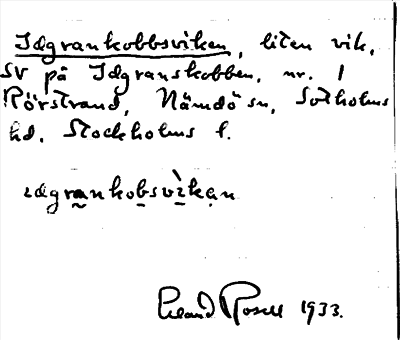 Idgrankobbsviken, liten vik,
SV på Idgranskobben, nr. 1
Rörstrand, Nämdö sn, Sotholms
hd. Stockholms l.
 idgrankobsvìkan
Erland Rosell 1933.